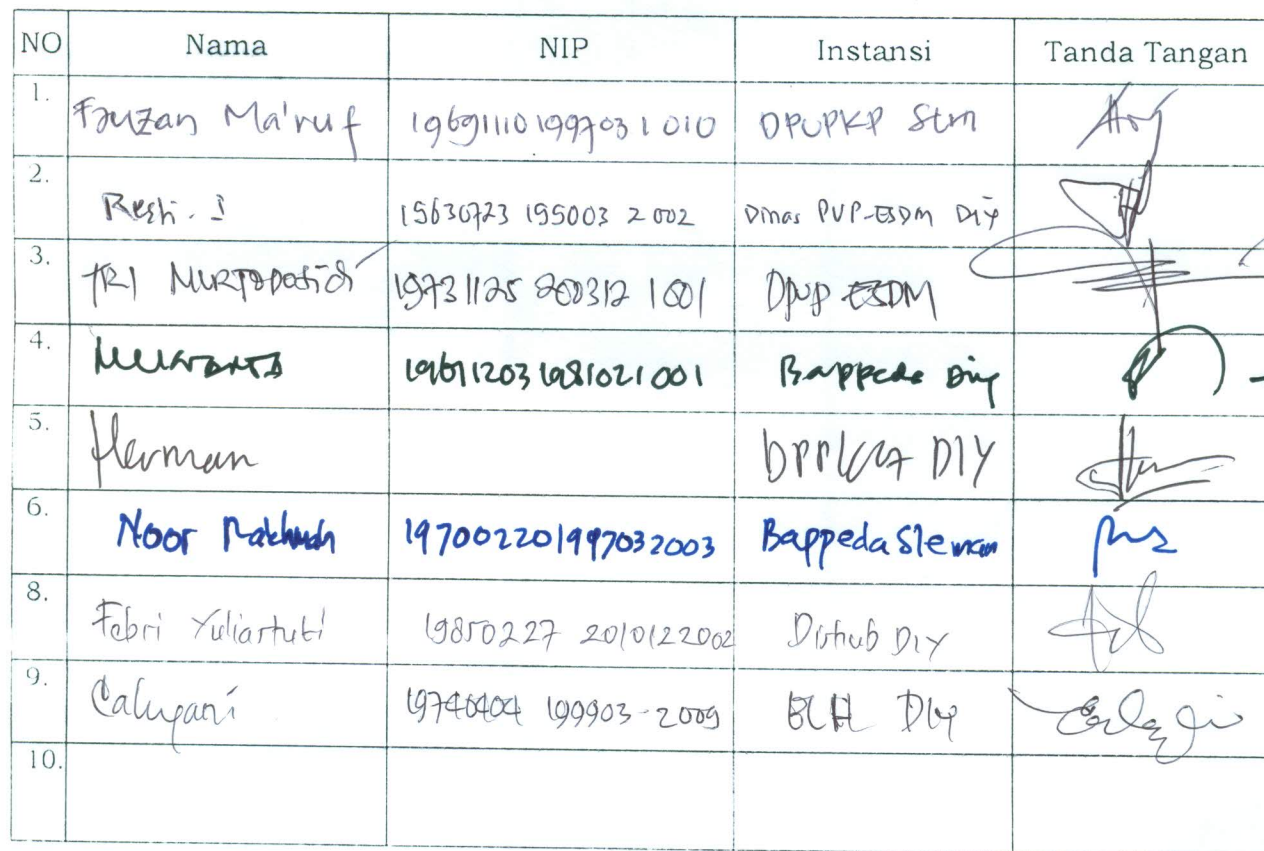 NO Nama NIP Instansi Tanda Tangan
1. Fauzan Ma'ruf 196911101997031010 DPUPKP Slm
2. Resti. I 19630723 199003 2 002 Dinas PUP-ESDM DIY
3. TRI MURTOPOSIDI 19731125 200312 1001 DPUP ESDM
4. 196712031981021001 Bappeda DIY
5. Herman DIY
6. Noor 197002201997032003 Bappeda Sleman
8. Febri Yuliartuti 19850227 2010122002 Dishub DIY
9. Cahyani 19740404 199903-2009 BLH DIY
10.